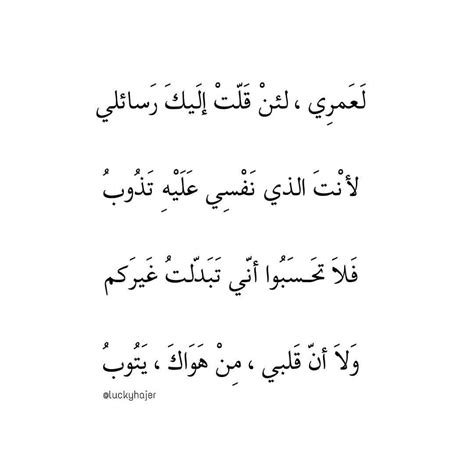 لَعَمرِي ، لئنْ قَلّتْ إلَيكَ رَسائلي
لأنْتَ الذي نَفْسِي عَلَيْهِ تَذُوبُ
فَلاَ تحَـسَبُوا أنّي تَبَدّلتُ غَيرَكم
وَلاَ أنّ قَلبي ، مِنْ هَوَاكَ ، يَتُوبُ
@luckyhajer